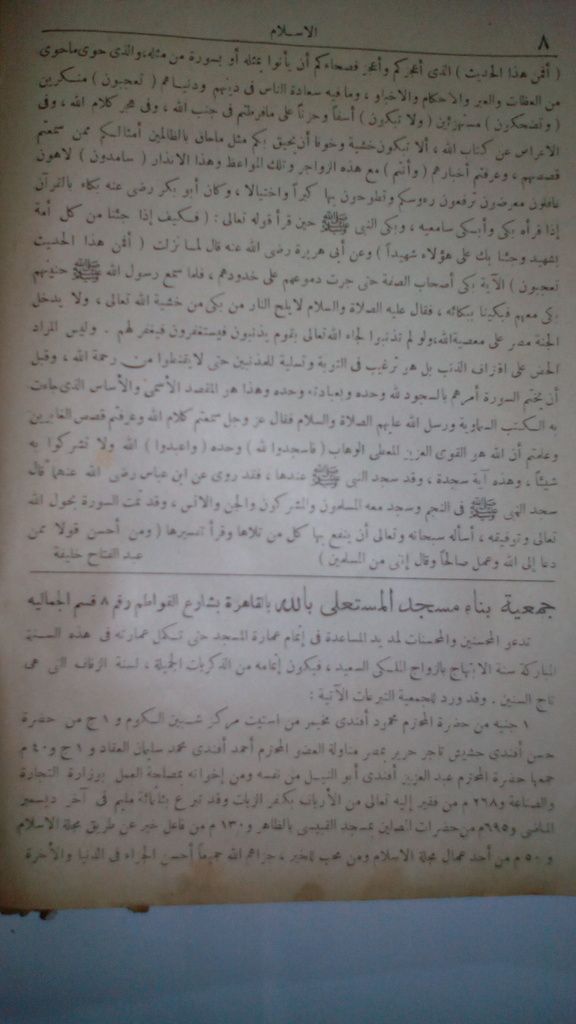 ٨
الاسلام
( أفمن هذا الحديث ) الذى أعجزكم وأعجز فصحاءكم أن يأتوا بمثله أو بسورة من مثله، والذى حوى ماحوى
من العظات والعبر والاحكام والاخبار ، وما فيه سعادة الناس فى دينهم ودنياهم ( تعجبون ) منكرين
( وتضحكون ) مستهزئين ( ولا تبكون ) أسفاً وحزناً على مافرطتم فى جنب الله ، وفى هجر كلام الله ، وفى
الاعراض عن كتاب الله ، ألا تبكون خشية وخوفا أن يحيق بكم مثل ماحاق بالظالمين أمثالكم ممن سمعتم
قصصهم ، وعرفتم أخبارهم ( وأنتم ) مع هذه الزواجر وتلك المواعظ وهذا الانذار ( سامدون ) لاهون
غافلون معرضون ترفعون رءوسكم وتطوحون بها كبراً واختيالا ، وكان أبو بكر رضى عنه بكاء بالقرآن
إذا قرأه بكى وأبكى سامعيه ، وبكى النبى ﷺ حين قرأ قوله تعالى : ( فكيف إذا جئنا من كل أمة
بشهيد وجئنا بك على هؤلاء شهيداً ) وعن أبى هريرة رضى الله عنه قال لما نزلت ( أفمن هذا الحديث
تعجبون ) الآية بكى أصحاب الصفة حتى جرت دموعهم على خدودهم ، فلما سمع رسول الله ﷺ حنينهم
بكى معهم فبكينا ببكائه ، فقال عليه الصلاة والسلام لايلج النار من بكى من خشية الله تعالى ، ولا يدخل
الجنة مصر على معصية الله، ولو لم تذنبوا لجاء الله تعالى بقوم يذنبون فيستغفرون فيغفر لهم . وليس المراد
الحض على اقتراف الذنب بل هو ترغيب فى التوبة وتسلية للمذنبين حتى لا يقنطوا من رحمة الله ، وقبل
أن يختم السورة أمرهم بالسجود لله وحده وبعبادته وحده وهذا هو المقصد الأسمى والأساس الذى جاءت
به الكتب السماوية ورسل الله عليهم الصلاة والسلام فقال عز وجل سمعتم كلام الله وعرفتم قصص الغابرين
وعلمتم أن الله هو القوى العزيز المعطى الوهاب ( فاسجدوا لله ) وحده ( واعبدوا ) الله ولا تشركوا به
شيئاً ، وهذه آية سجدة ، وقد سجد النبى ﷺ عندها ، فقد روى عن ابن عباس رضى الله عنهما قال
سجد النبى ﷺ فى النجم وسجد معه المسلمون والمشركون والجن والانس ، وقد تمت السورة بحول الله
تعالى وتوفيقه ، أسأله سبحانه وتعالى أن ينفع بها كل من تلاها وقرأ تفسيرها ( ومن أحسن قولا ممن
دعا إلى الله وعمل صالحاً وقال إننى من المسلمين ) عبد الفتاح خليفة
جمعية بناء مسجد المستعلى بالله بالقاهرة بشارع الفواطم رقم ٨ قسم الجماليه
تدعو المحسنين والمحسنات لمد يد المساعدة فى إتمام عمارة المسجد حتى تكمل عمارته فى هذه السنة
المباركة سنة الابتهاج بالزواج الملكى السعيد ، فيكون إتمامه من الذكريات الجميلة ، لسنة الزفاف التى هى
تاج السنين . وقد ورد للجمعية التبرعات الآتية :
١ جنيه من حضرة المحترم محمود أفندى مخيمر من اسنيت مركز شبين الكوم و ١ ج من حضرة
حسن أفندى حشيش تاجر حرير بمصر مناولة العضو المحترم أحمد أفندى محمد سليمان العقاد و ١ ج و ٤٠ م
جمعها حضرة المحترم عبد العزيز أفندى أبو النيل من نفسه ومن إخوانه بمصلحة العمل بوزارة التجارة
والصناعة و ٢٦٨ م من فقير إليه تعالى من الأرياف بكفر الزيات وقد تبرع بثلثمائة مليم فى آخر ديسمبر
الماضى و ٦٩٥م من حضرات المصلين بمسجد القبيسى بالظاهر و ١٣٠ م من فاعل خير عن طريق مجلة الاسلام
و ٥٠ م من أحد عمال مجلة الاسلام ومن محب للخير ، جزاهم الله جميعاً أحسن الجزاء فى الدنيا والآخرة